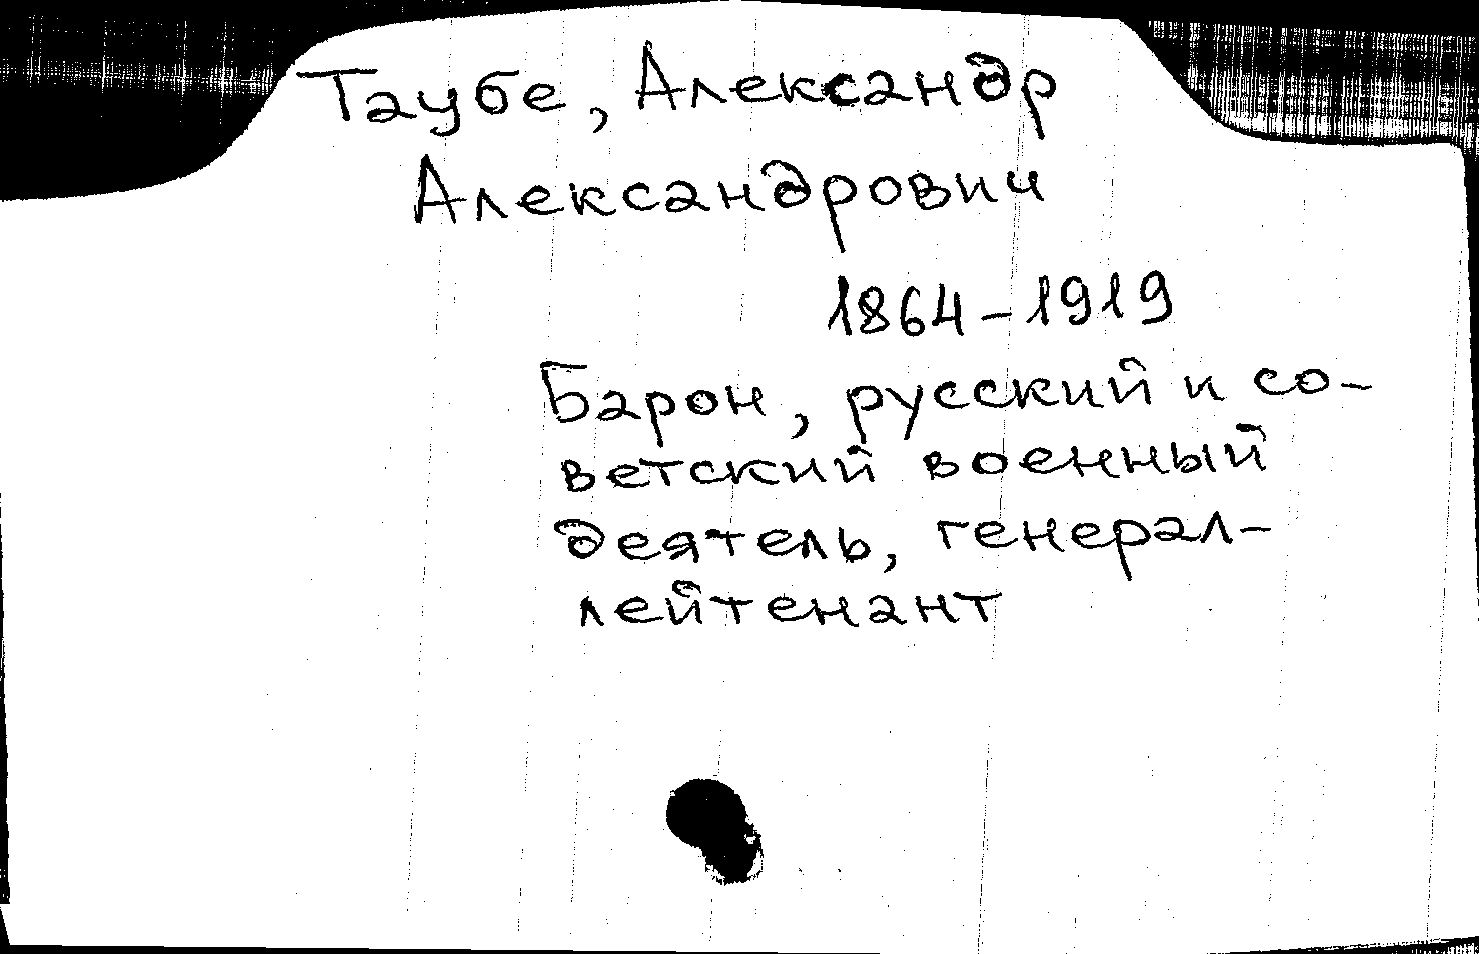 Таубе, Александр
Александрович
1864-1919
Барон, русский и со-
ветский военный
деятель, генерал-
лейтенант